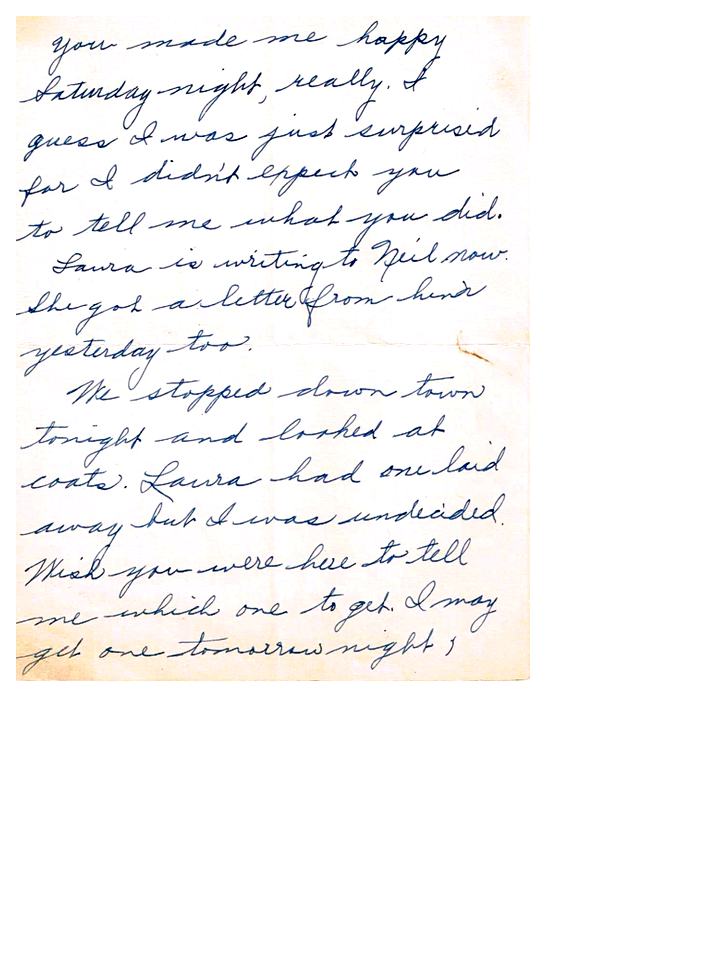 You made me happy
Saturday night, really. I
guess I was just surprised
for I didn't expect you
to tell me what you did.
Laura is writing to Neil now.
She got a letter from him
yesterday too.
We stopped down town
tonight and looked at
coats. Laura had one laid
away but I was undecided.
Wish you were here to tell
me which one to get. I may
get one tomorrow night,